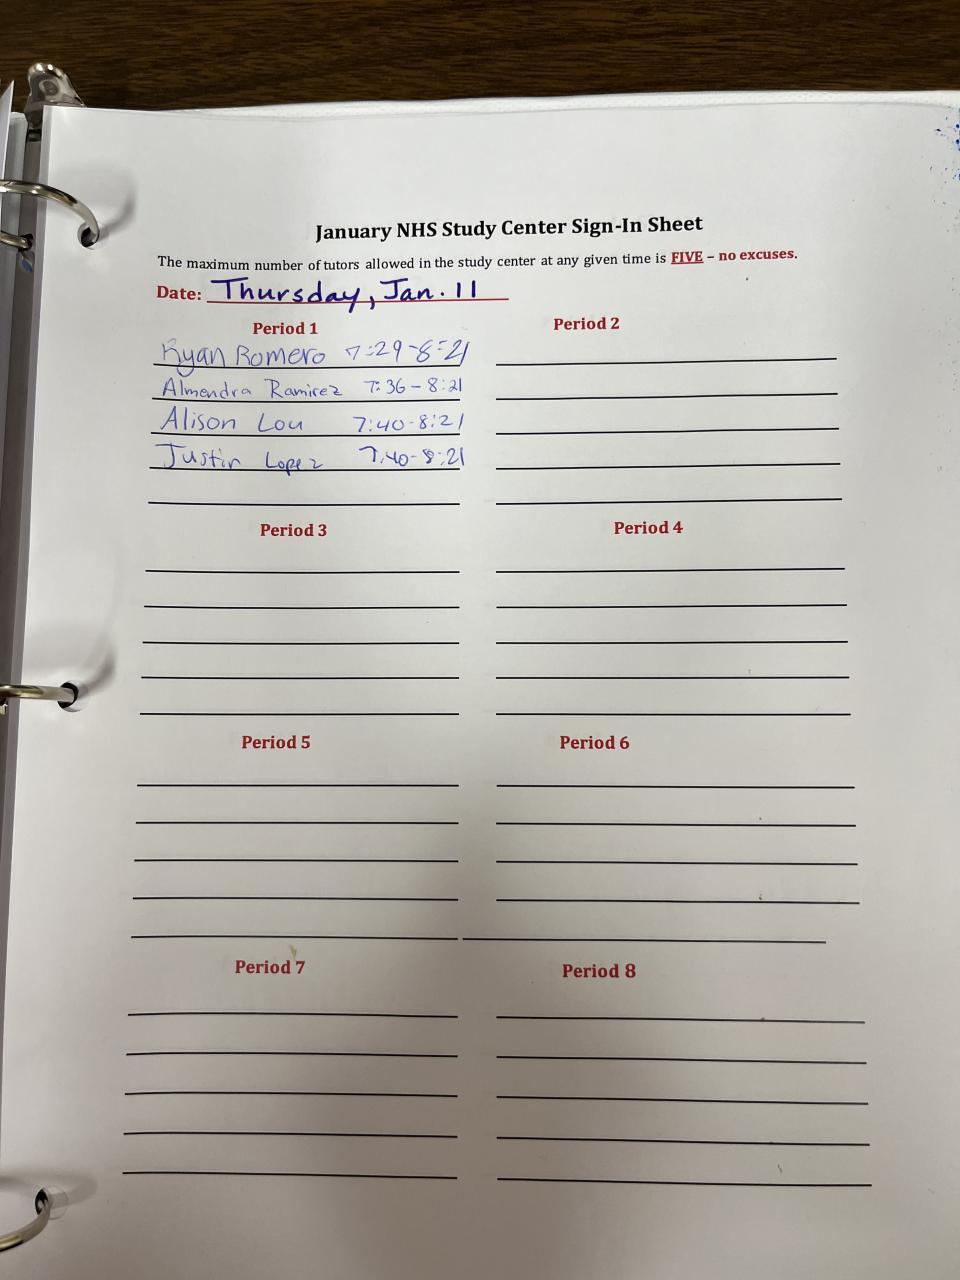 January NHS Study Center Sign-In Sheet
The maximum number of tutors allowed in the study center at any given time is FIVE – no excuses.
Date: Thursday, Jan. 11
Period 1
Ryan Romero 7:29-8:21
Almendra Ramirez 7:36-8:21
Alison Lou 7:40-8:21
Justin Lopez 7:40-8:21
Period 2
Period 3
Period 4
Period 5
Period 6
Period 7
Period 8